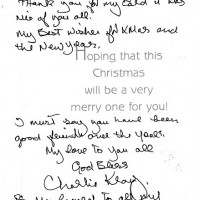 Thank you for my card it was
nice of you all.
My Best Wishes for XMas and
the New Years.
Hoping that this
Christmas
will be a very
merry one for you!
I must say you have been
good friends over the years.
My love to You all
God Bless
Charlie Kray